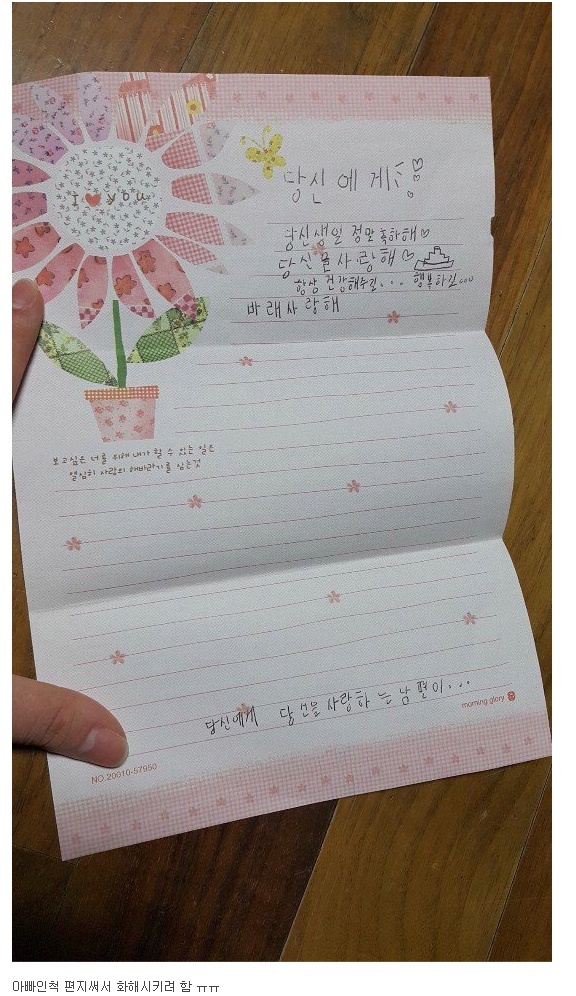 I ♥ you
당신에게 ♡♡
당신생일 정말축하해♡
당신을사랑해♡
항상 건강해주길... 행복하길...
바래사랑해
보고싶은 너를 위해 내가 할 수 있는 일은
열심히 사랑의 해바라기를 심는것
당신에게 당신을사랑하는남편이...
morning glory
NO.20010-57950
아빠인척 편지써서 화해시키려 함 ㅠㅠ